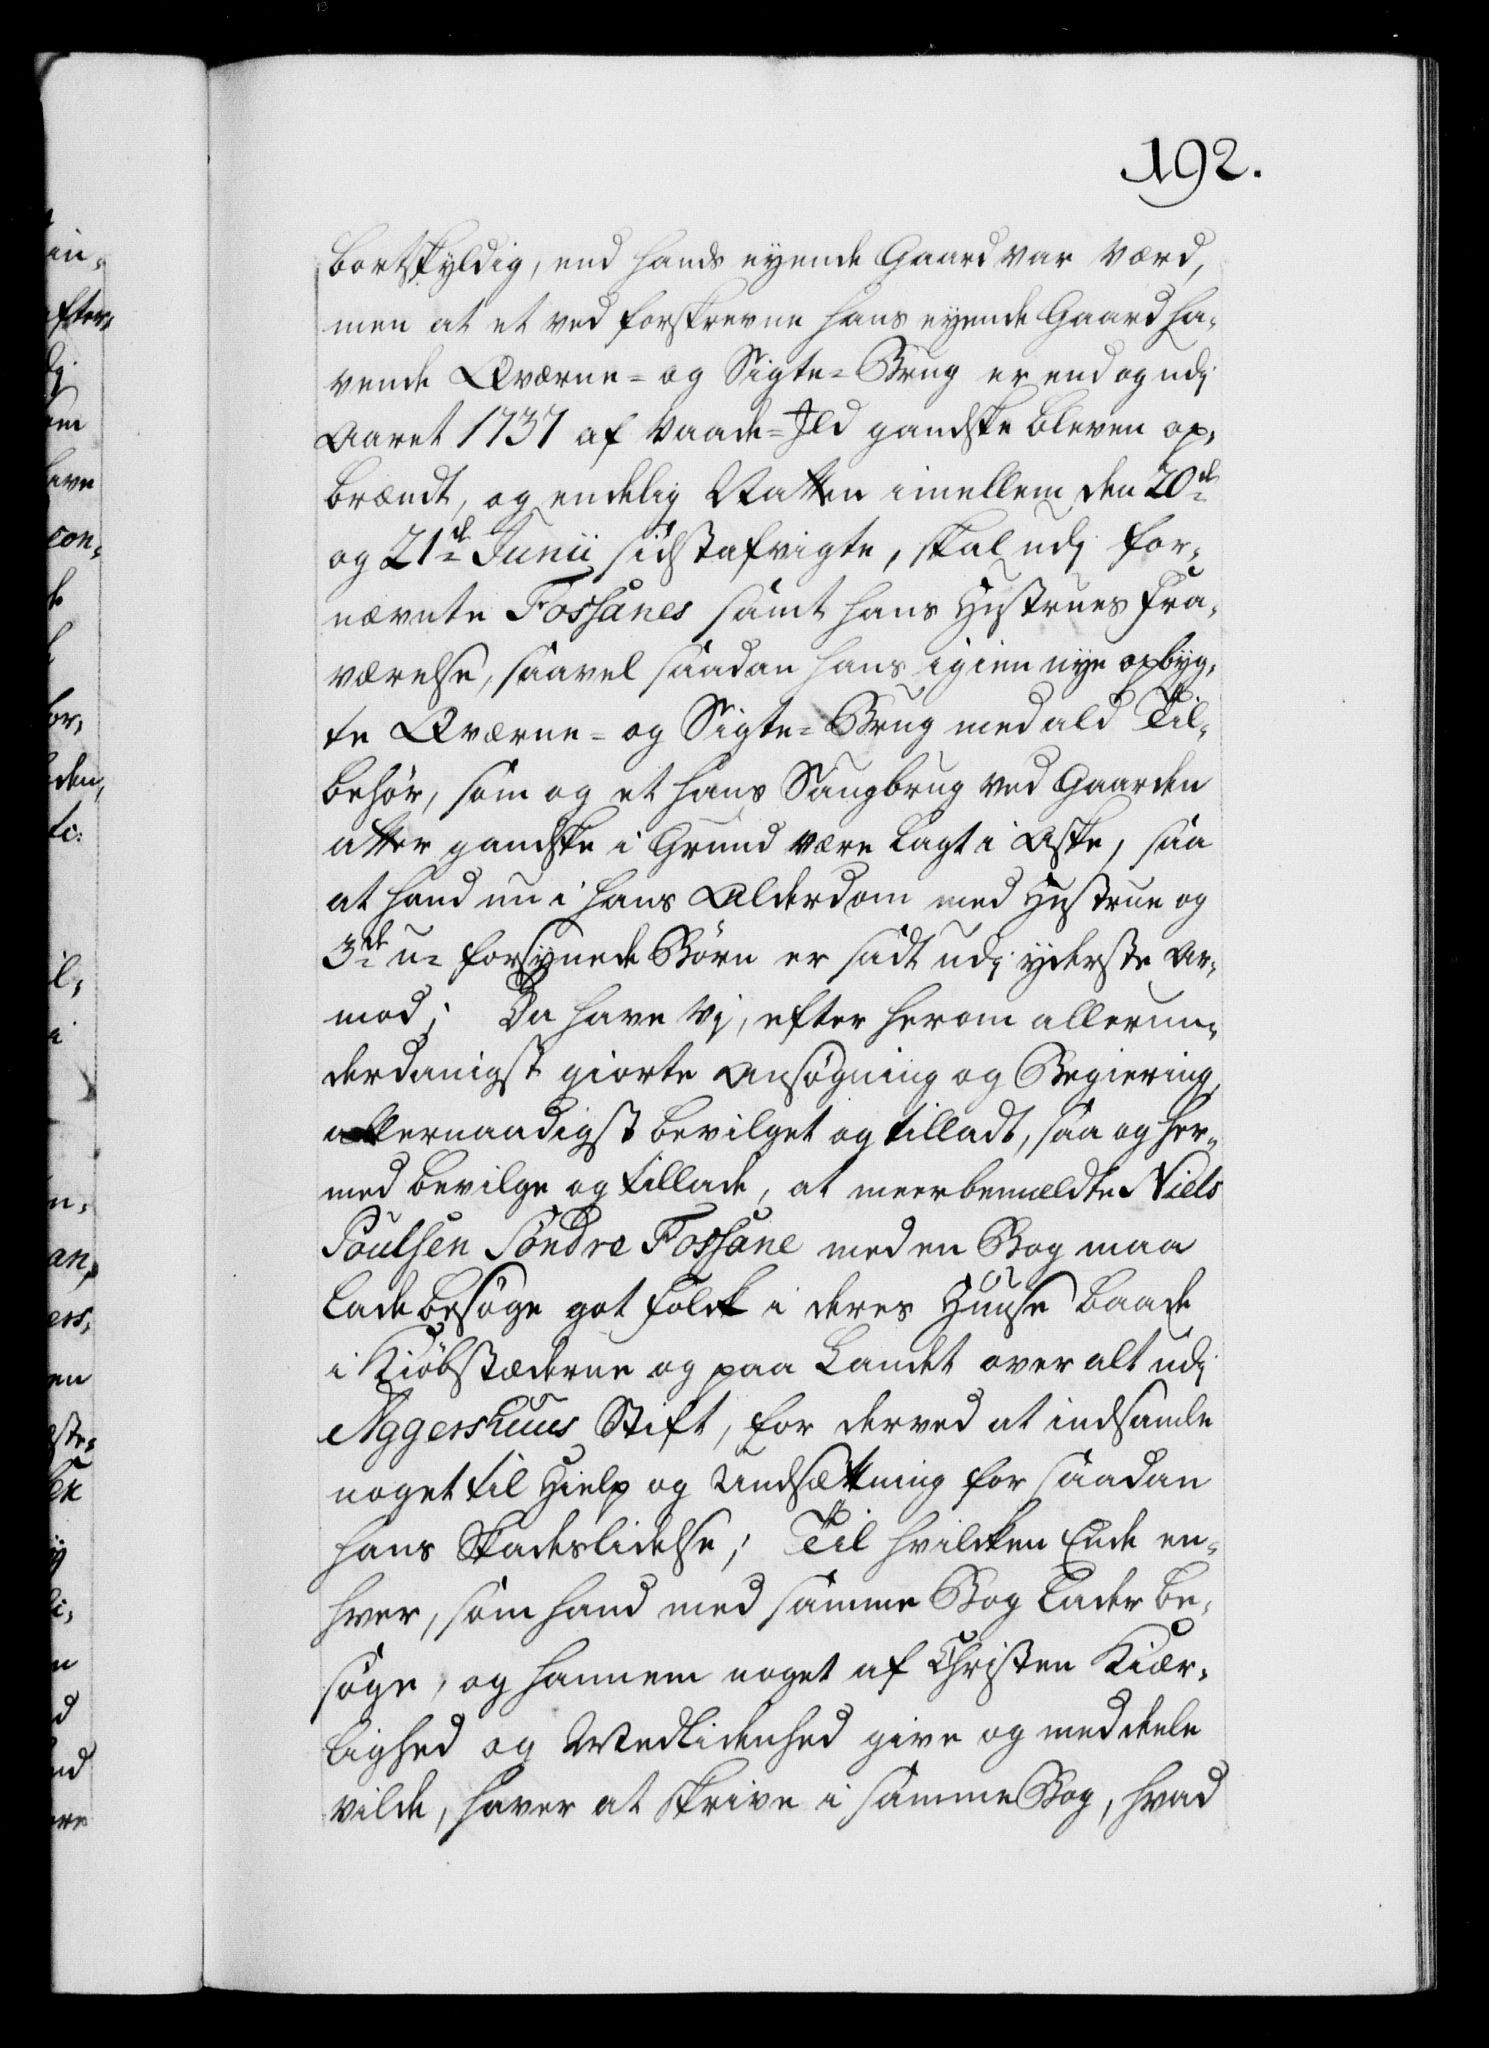 192.
bortskyldig, end hands eyende Gaard var værd,
men at et ved forskrevne hans eyende Gaard ha-
vende Qværne= og Sigte=Brug er end og udj
Aaret 1737 af Vaade=Ild gandske bleven op-
brændt, og endelig Natten imellem den 20de
og 21de Junii sidstafvigte, skal udj for-
nævnte Fossanes samt hans Hustrues Fra-
værelse, saavel saadan hans igien nye opbyg-
te Qværne= og Sigte=Brug med ald Til-
behør, som og et hans Saugbrug ved Gaarden
atter gandske i Grund være lagt i Aske, saa
at hand nu i hans Alderdom med Hustrue og
3de u= forsynede Børn er sadt udj yderste Ar-
mod; Da have Vj, efter herom allerun-
derdanigst giorte Ansøgning og Begiering,
allernaadigst bevilget og tilladt, saa og her-
med bevilge og tillade, at meerbemældte Niels
Poulsen Søndre Fossane med en Bog maa
lade besøge got Folck i deres Huuse baade
i Kiøbstæderne og paa Landet over alt udj
Aggershuus Stift, for derved at indsamle
noget til Hielp og Undsættning for saadan
hans Skadeslidelse; Til hvilcken Ende en-
hver, som hand med samme Bog lader be-
søge, og hannem noget af Christen Kiær-
lighed og Medlidenhed give og meddeele
vilde, haver at skrive i samme Bog, hvad